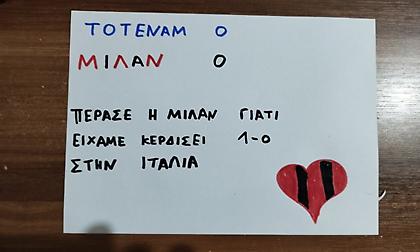 ΤΟΤΕΝΑΜ 0
ΜΙΛΑΝ 0
ΠΕΡΑΣΕ Η ΜΙΛΑΝ ΓΙΑΤΙ
ΕΙΧΑΜΕ ΚΕΡΔΙΣΕΙ 1-0
ΣΤΗΝ ΙΤΑΛΙΑ